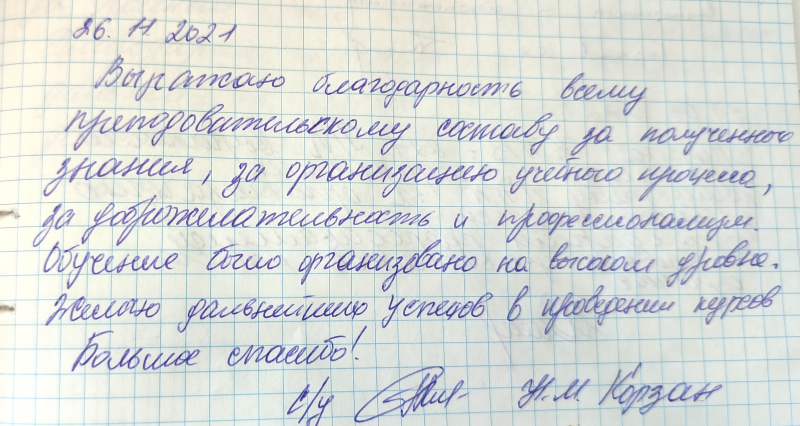 26.11.2021
Выражаю благодарность всему
преподовательскому составу за полученного
знания, за организацию учебного процесса,
за доброжелательность и профессионализм.
Обучение было организовано на высоком уровне.
Желаю дальнейших успехов в проведении курсов
Большое спасибо!
с/у Н.М. Корзан